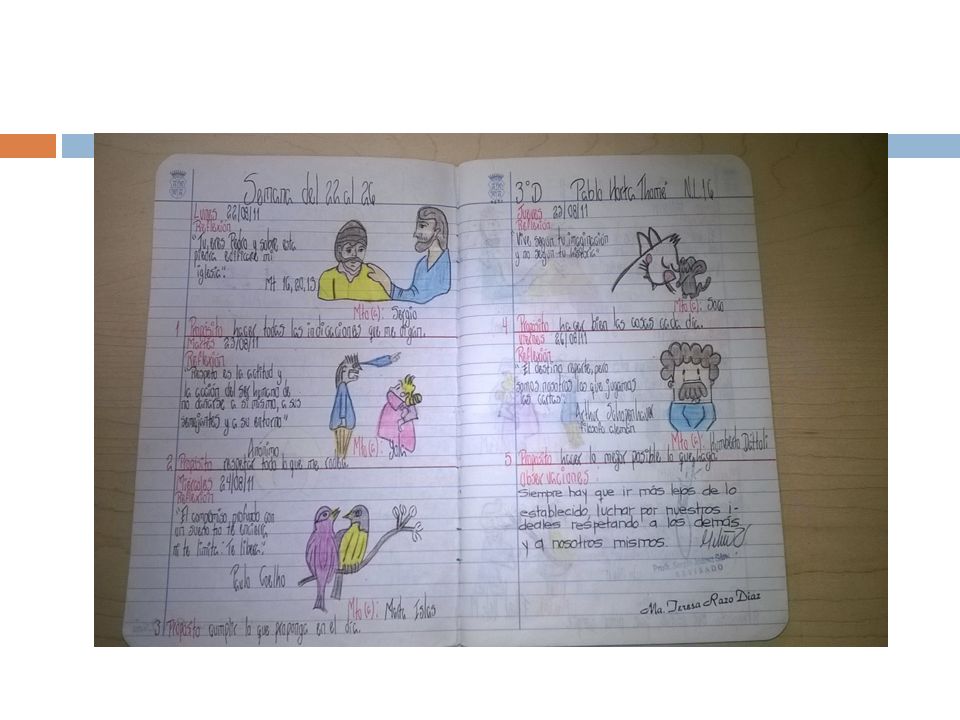 Semana del 22 al 26
Lunes 22/08/11
Reflexión
"Tu, eres Pedro y sobre esta
piedra edificare mi
iglesia".
Mt 16, 20, 13
Mto(a): Sergio
1 Propósito hacer todas las indicaciones que me digan.
Martes 23/08/11
Reflexión
"Respeto es la actitud y
la acción del ser humano de
no dañarse a si mismo, a sus
semejantes y a su entorno"
Anónimo
Mto(a): Yola
2 Propósito respetar todo lo que me rodea.
Miércoles 24/08/11
Reflexión
"El compromiso profundo con
un sueño no te encierra,
ni te limita: Te libera."
Paulo Coelho
Mto(a): Malta Islas
3 Propósito cumplir lo que proponga en el día.
3°D Pablo Horta Thomé N.L.16
Jueves 25/08/11
Reflexión
Vive según tu imaginación
y no según tu historia"
Mto(a): Soco
4 Propósito hacer bien las cosas cada día.
Viernes 26/08/11
Reflexión
"El destino reparte, pero
somos nosotros los que jugamos
las cartas".
Arthur Schopenhauer
filósofo alemán
Mto(a): Humberto Dattoli
5 Propósito hacer lo mejor posible lo que haga.
Observaciones:
Siempre hay que ir más lejos de lo
establecido, luchar por nuestros i-
deales respetando a los demás
y a nosotros mismos.
REVISADO
Ma. Teresa Razo Díaz